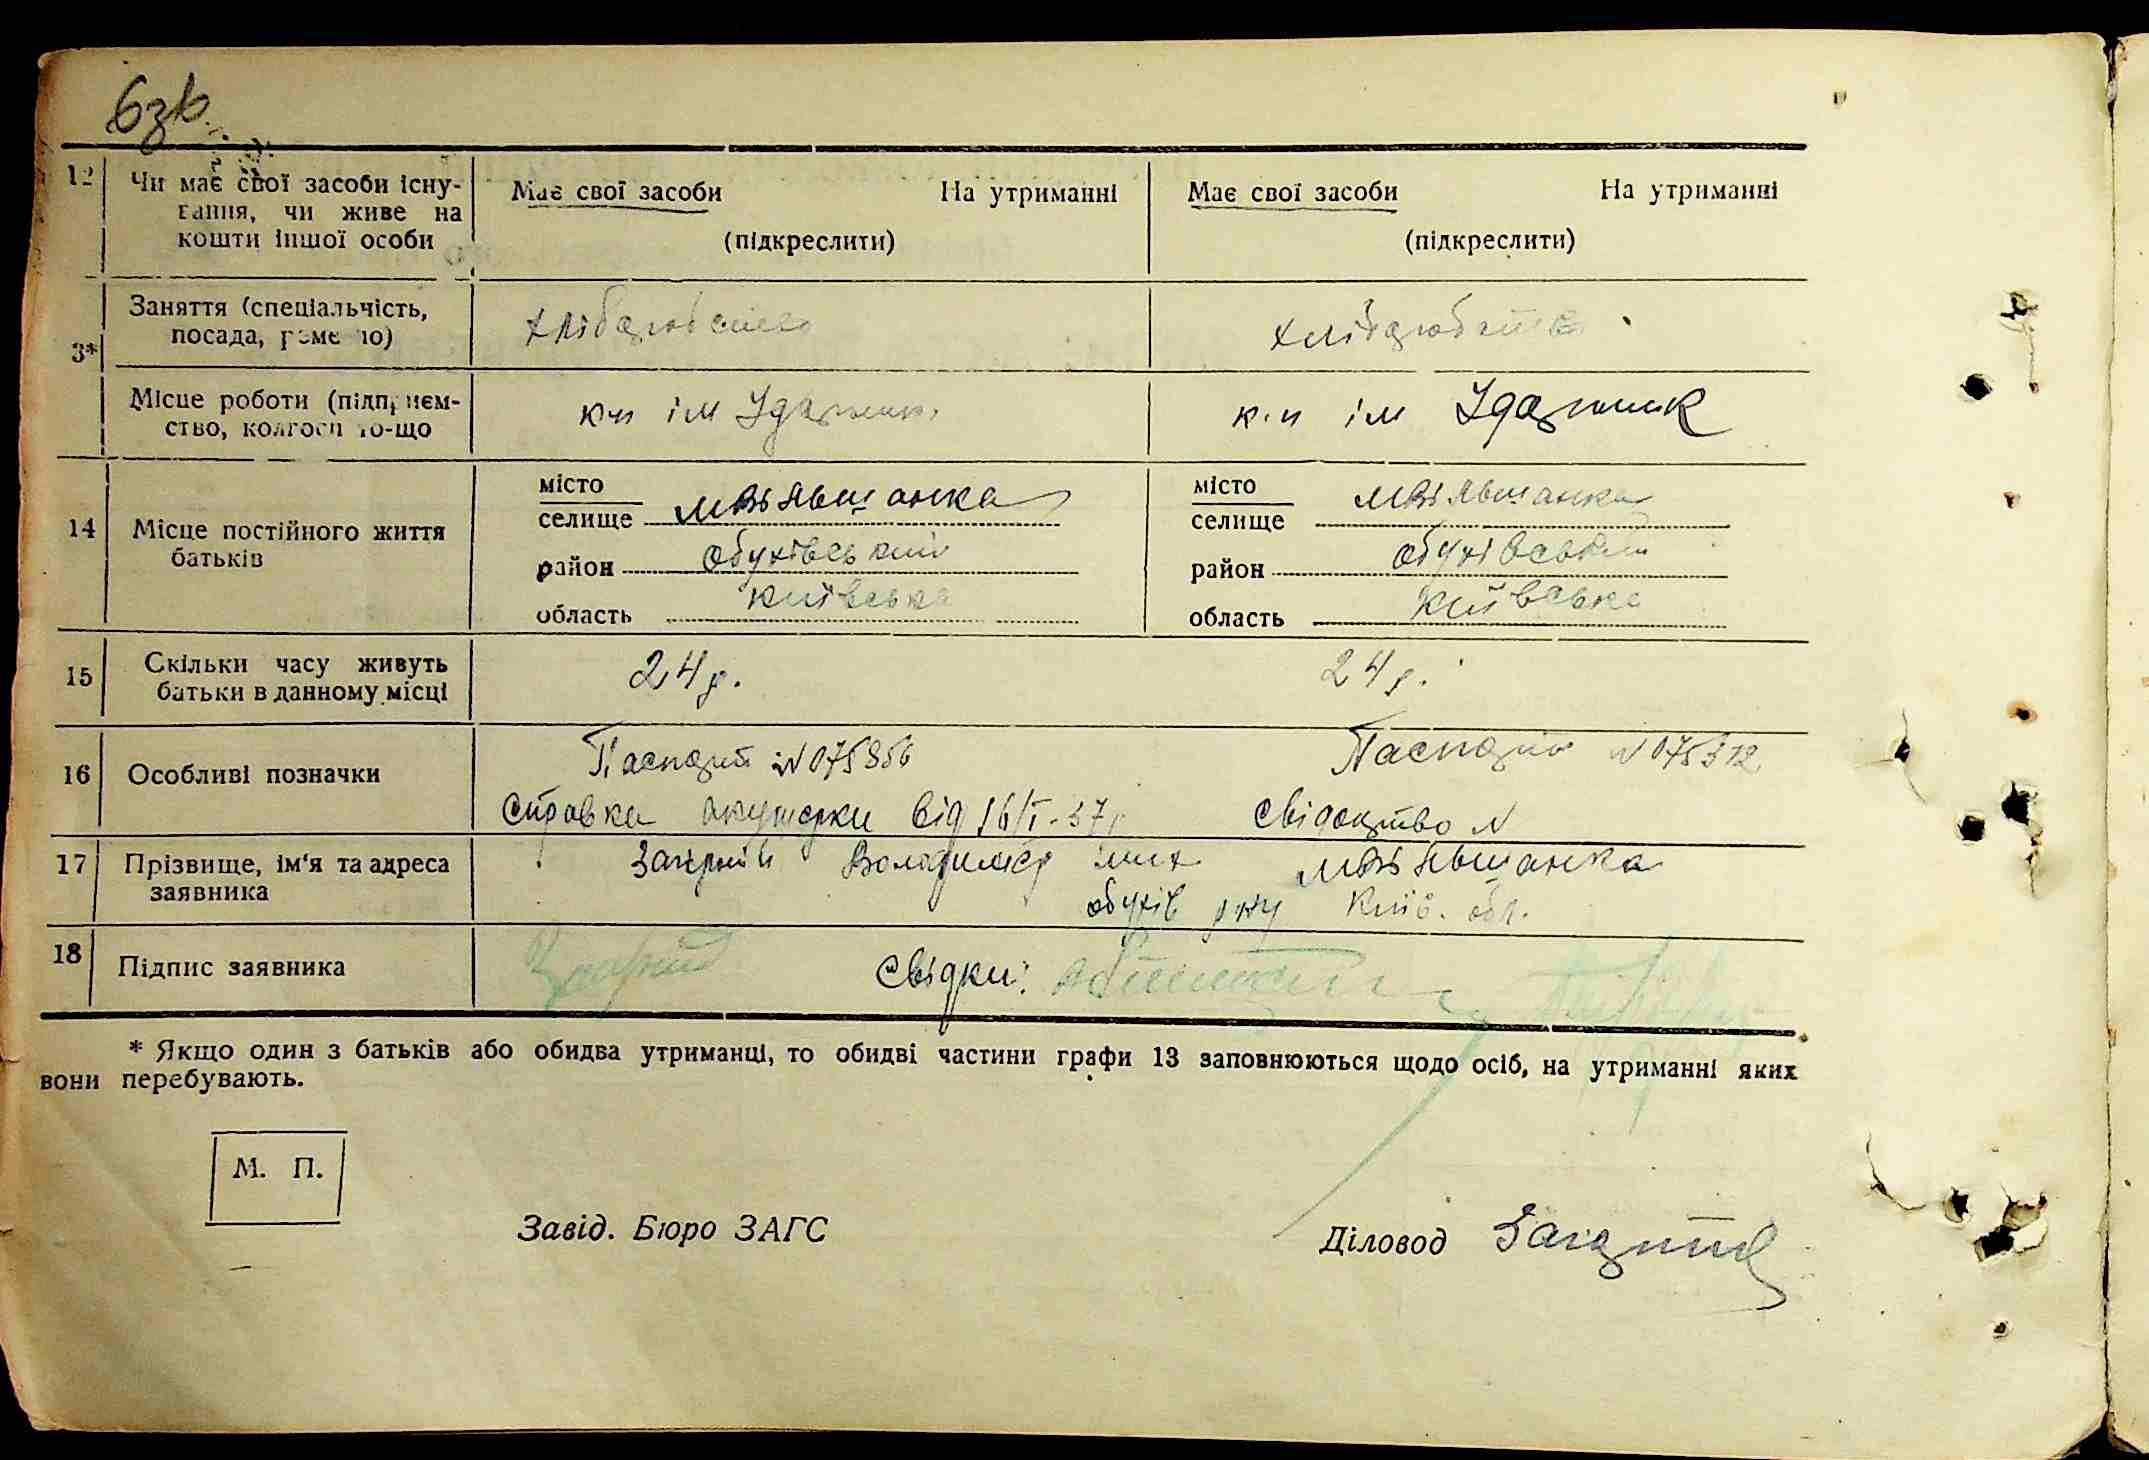 6зв.
12 Чи має свої засоби існу- Має свої засоби На утриманні Має свої засоби На утриманні
вання, чи живе на
кошти іншої особи (підкреслити) (підкреслити)
Заняття (спеціальність, хліборобство хліборобство
посада, ремесло)
3*
Місце роботи (підприєм- к-п ім Ударник к-п ім Ударник
ство, колгосп то-що
місто місто
селище селище
14 Місце постійного життя
батьків
район Обухівський район Обухівський
область Київська область Київська
15 Скільки часу живуть 24 р. 24 р.
батьки в данному місці
16 Особливі позначки Паспорт N 075856 Паспорт N 075312
Справка акушерки від 16/I-37р Свідоцтво N
17 Прізвище, ім'я та адреса Володимир
заявника Обухів р-ну Київ. обл.
18 Підпис заявника Свідки:
* Якщо один з батьків або обидва утриманці, то обидві частини графи 13 заповнюються щодо осіб, на утриманні яких
вони перебувають.
М. П.
Завід. Бюро ЗАГС Діловод